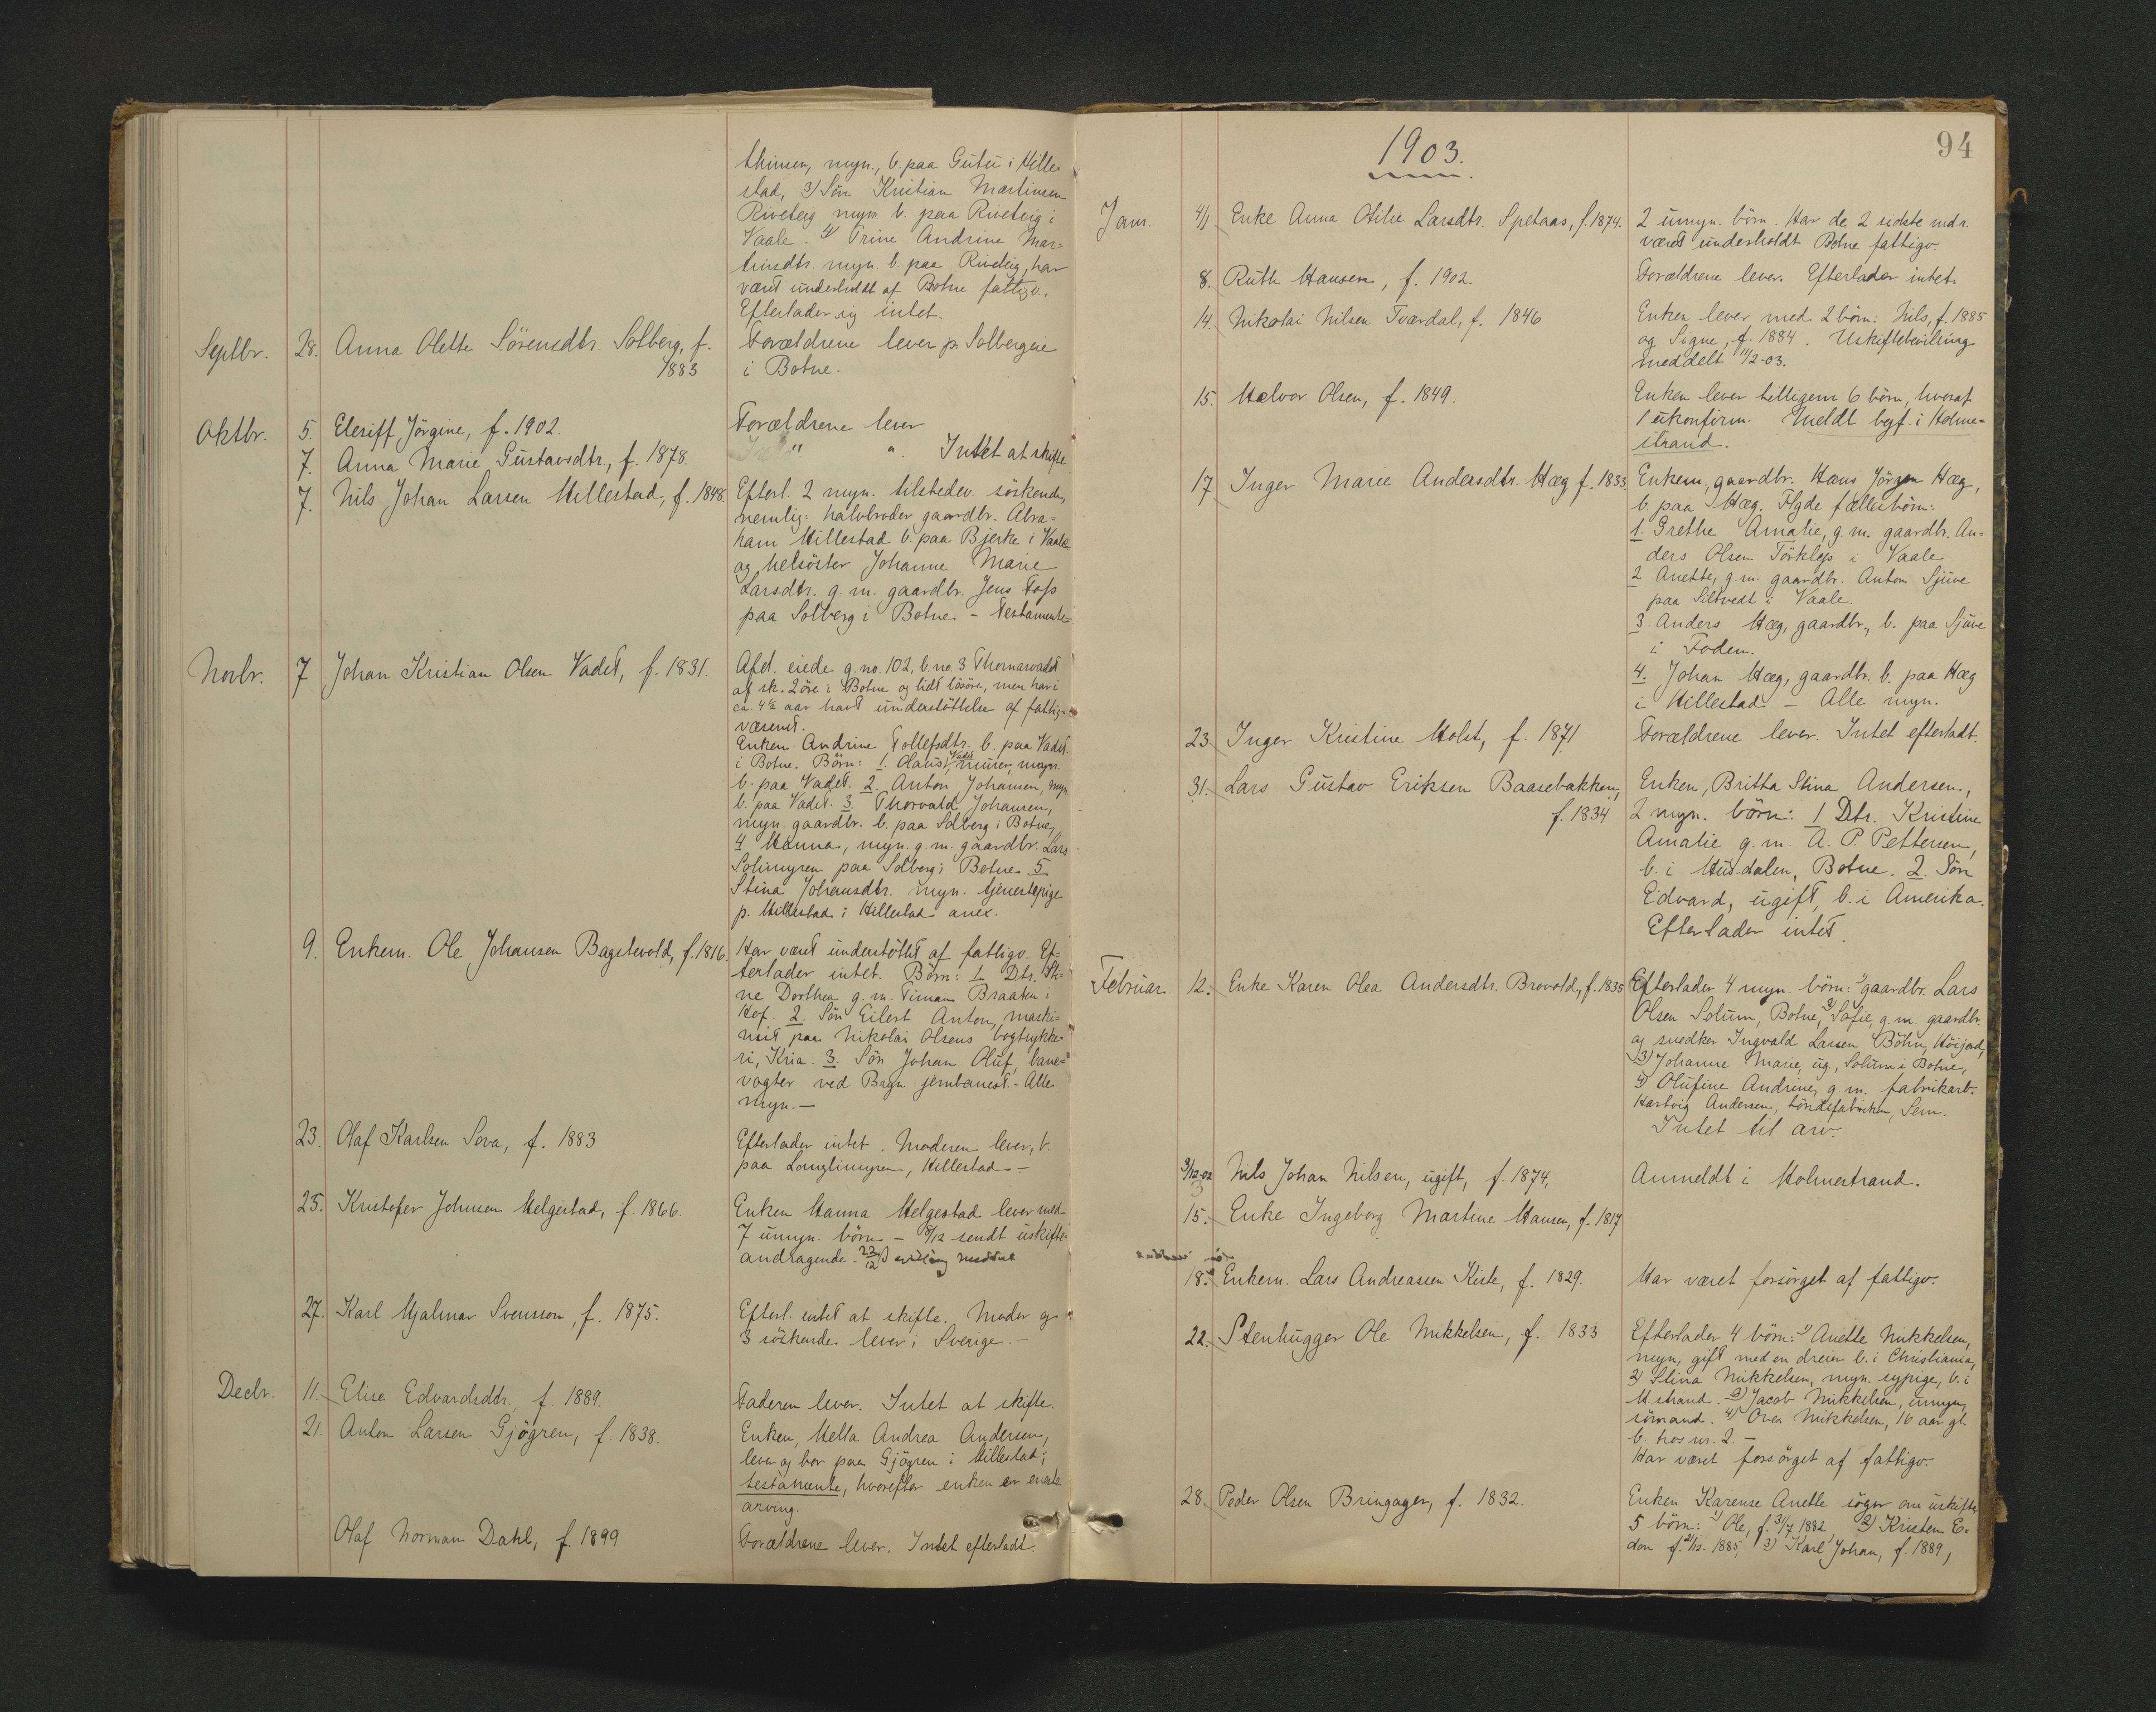 thinsen, myn., b. paa Gutu i Hille-
stad, 3) Søn Kristian Martinsen
Riveteig myn. b. paa Riveteig i
Vaale. 4) Trine Andrine Mar=
tinsdtr. myn. b. paa Riveteig, har
været underholdt af Botne fattigv.
Efterlader sig intet.
Septbr. 28. Anna Olette Sörensdtr. Solberg, f.
1883
Forældrene lever p. Solbergeie
i Botne.
Oktbr. 5. Elesiff Jörgine, f. 1902.
Forældrene lever
7. Anna Marie Gustavsdtr., f. 1878.
" ". Intet at skifte
7. Nils Johan Larsen Hillestad, f. 1848.
Efterl. 2 myn. tilstedev. söskende,
nemlig: halvbroder gaardbr. Abra=
ham Hillestad b. paa Bjerke i Vaale
og helsöster Johanne Marie
Larsdtr. g. m. gaardbr. Jens Foss
paa Solberg i Botne. - Testamente-
Novbr. 7 Johan Kristian Olsen Vadet, f. 1831.
Afd. eiede g.no. 102, b.no. 3 Thomasvadet
af sk. 2 öre i Botne og lidt lösöre, men har i
ca. 4½ aar havt understöttelse af fattig-
væsenet.
Enken Andrine Tollefsdtr. b. paa Vadet
i Botne. Börn: 1. Olaus Vadet, murer, myn.
b. paa Vadet. 2. Anton Johansen, myn
b. paa Vadet. 3 Thorvald Johansen,
myn. gaardbr. b. paa Solberg i Botne,
4 Hanna, myn. g. m. gaardbr. Lars
Solumyren paa Solberg i Botne. 5
Stina Johansdtr. myn. tjenestepige
p. Hillestad i Hillestad anex.
9. Enkem. Ole Johansen Bagstevold, f. 1816.
Har været understöttet af fattigv. Ef=
terlader intet. Börn: 1 Dtr. Sti=
ne Dorthea g. m. Timan Braaten i
Hof. 2. Sön Eilert Anton, maski=
nist paa Nikolai Olsens bogtrykke-
ri, Kria. 3. Sön Johan Oluf, bane=
vogter ved Bryn jernbanest. - Alle
myn. —
23. Olaf Karlsen Sova, f. 1883
Efterlader intet. Moderen lever, b.
paa Langlimyren, Hillestad —
25. Kristofer Johnsen Helgestad, f. 1866.
Enken Hanna Helgestad lever med
7 umyn. börn — 8/12 sendt uskifte-
andragende. 23/12
27. Karl Hjalmar Svensson, f. 1875.
Efterl. intet at skifte. Moder og
3 söskende lever i Sverige. —
Decbr. 11. Elise Edvardsdtr., f. 1889.
Faderen lever. Intet at skifte.
21. Anton Larsen Gjögren, f. 1838.
Enken, Hella Andrea Andersen,
lever og bor paa Gjögren i Hillestad;
testamente, hvorefter enken er eneste
arving.
Olaf Norman Dahl, f. 1899
Forældrene lever. Intet efterladt.
94
1903.
Janr. 4/1 Enke Anna Otilie Larsdtr. Spetaas, f. 1874.
2 umyn. börn. Har de 2 sidste mdr.
været underholdt Botne fattigv.
8. Ruth Hansen, f. 1902.
Forældrene lever. Efterlader intet.
14. Nikolai Nilsen Tværdal, f. 1846
Enken lever med 2 börn: Nils, f. 1885
og Signe, f. 1884. Uskiftebevilling
meddelt 11/2-03.
15. Halvor Olsen, f. 1849.
Enken lever tilligem. 6 börn, hvoraf
1 ukonfirm. Meldt byf. i Holme=
strand.
17. Inger Marie Andersdtr. Hæg f. 1833.
Enkem., gaardbr. Hans Jörgen Hæg,
b. paa Hæg. Flgde fællesbörn:
1. Grethe Amalie, g. m. gaardbr. An=
ders Olsen Törklep i Vaale
2 Anette, g. m. gaardbr. Anton Sjuve
paa Siltvedt i Vaale.
3 Anders Hæg, gaardbr., b. paa Sjuve
i Foden.
4. Johan Hæg, gaardbr. b. paa Hæg
i Hillestad — Alle myn.
23. Inger Kristine Holst, f. 1871
Forældrene lever. Intet efterladt.
31. Lars Gustav Eriksen Baasebakken,
f. 1834
Enken, Britta Stina Andersen,
2 myn. börn: 1 Dtr. Kristine
Amalie g. m. A. P. Pettersen,
b. i Husdalen, Botne. 2. Sön
Edvard, ugift, b. i Amerika.
Efterlader intet.
Februar 12. Enke Karen Olea Andersdtr. Brovold, f. 1835
Efterlader 4 myn. börn: 1) gaardbr. Lars
Olsen Solum, Botne, 2) Sofie, g. m. gaardbr.
og snedker Ingvald Larsen Böhn, Höijord,
3) Johanne Marie, ug., Solum i Botne,
4) Olufine Andrine, g. m. fabrikarb.
Hartvig Andersen, töndefabriken, Sem.
Intet til arv.
3/12-02 Nils Johan Nilsen, ugift, f. 1874,
Anmeldt i Holmestrand.
15. Enke Ingeborg Martine Hansen, f. 1817
18. Enkem. Lars Andreassen Kiste, f. 1829.
Har været forsörget af fattigv.
22. Stenhugger Ole Mikkelsen, f. 1833
Efterlader 4 börn: 1) Anette Mikkelsen,
myn, gift med en dreier b. i Christiania,
2) Stina Mikkelsen, myn. sypige, b. i
H.strand. 3) Jacob Mikkelsen, umyn,
sömand. 4) Over Mikkelsen, 16 aar gl.
b. hos nr. 2. —
Har været forsörget af fattigv.
28. Peder Olsen Bringager, f. 1832.
Enken Karense Anette söger om uskifte,
5 börn: 1) Ole, f. 31/7 1882, 2) Kristen E=
don f. 21/12. 1885, 3) Karl Johan, f. 1889,